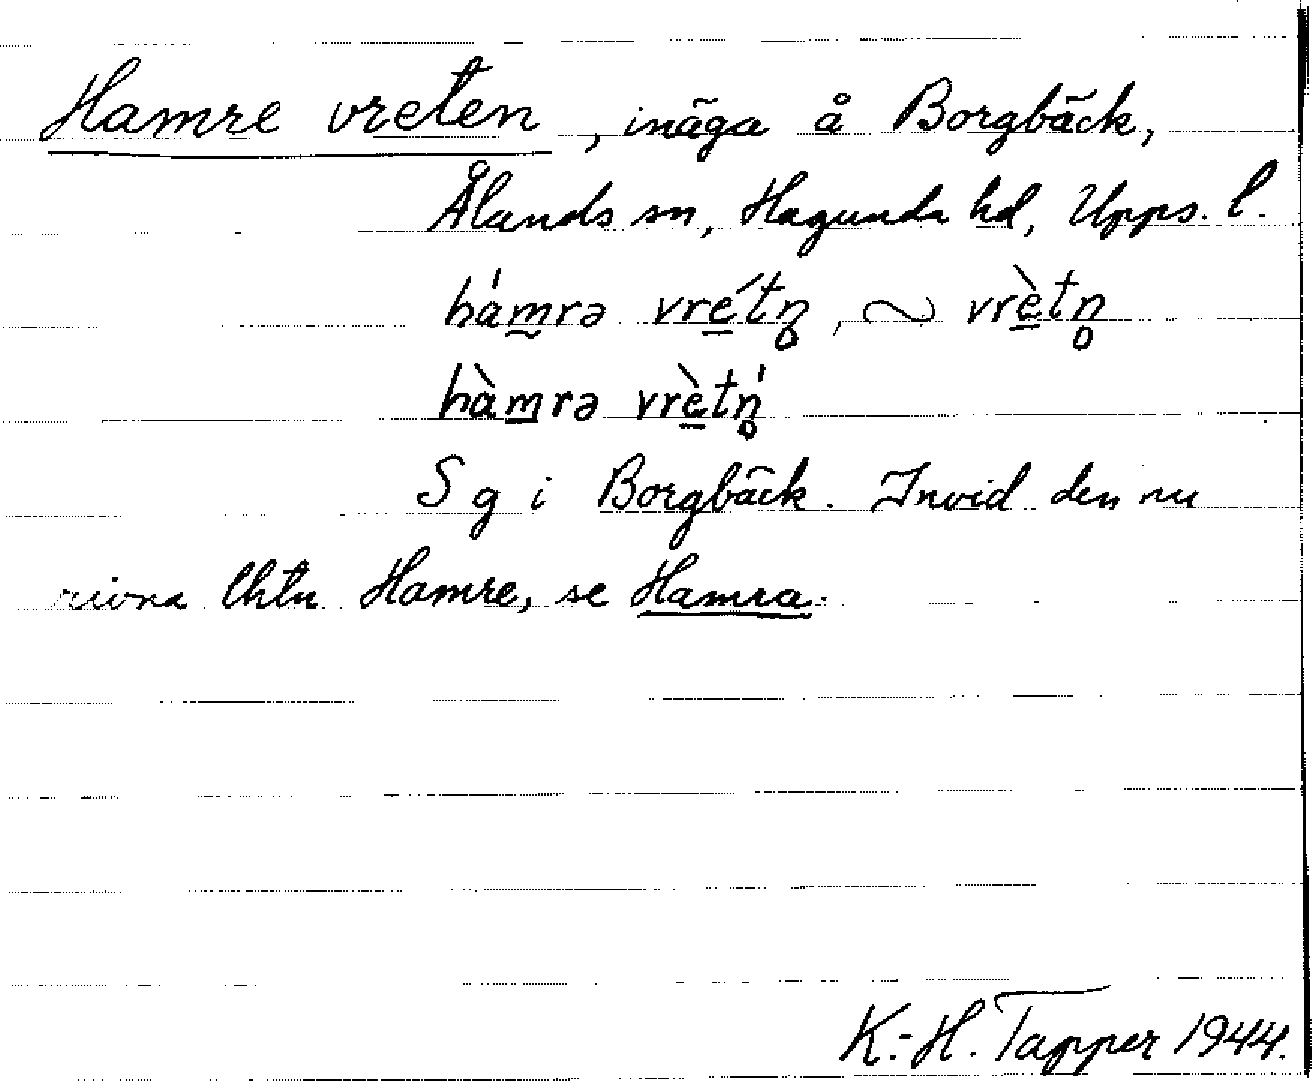 Hamre vreten, inäga å Borgbäck,
Ålands sn, Hagunda hd, Upps. l.
hámrə vrétn̥, ~ vrètn̥
hàmrə vrètń̥
S g i Borgbäck. Invid den nu
rivna lhtn Hamre, se Hamra.
K.-H. Tapper 1944.